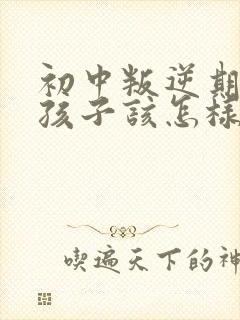 初中叛逆期
孩子该怎样
喫遍天下的神